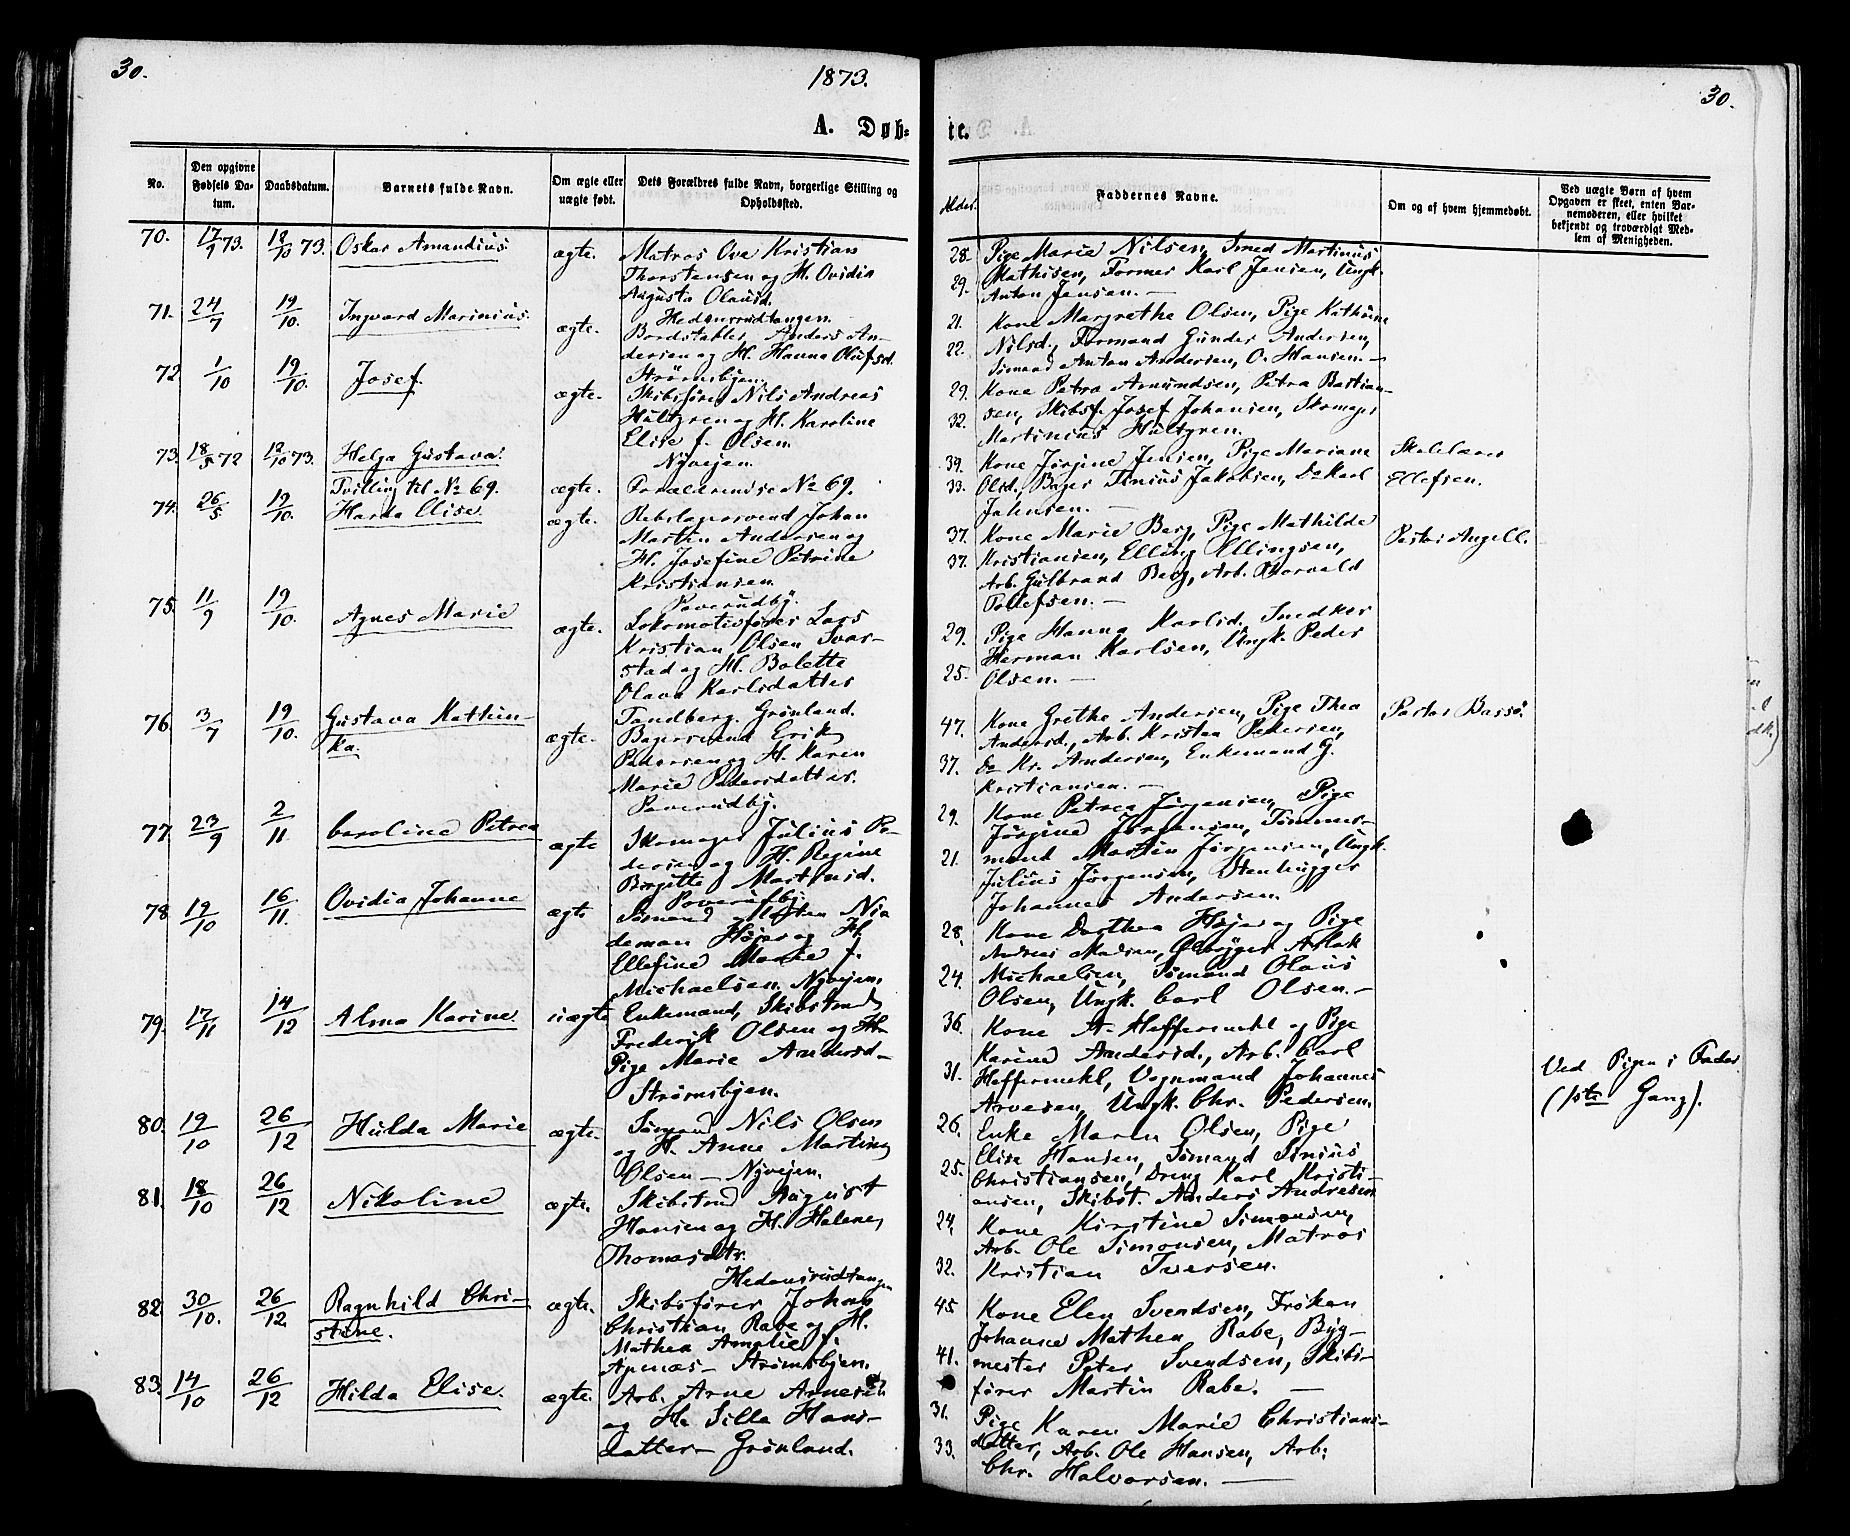 30.
1873.
A. Døb-
No.
Den opgivne Fødsels Da-tum.
Daabsdatum.
Barnets fulde Navn.
Om ægte eller uægte født.
Dets Forældres fulde Navn, borgerlige Stilling og Opholdssted.
70. 17/9 73. 12/10 73. Oskar Amandius. ægte. Matros Ove Kristian
Thorstensen og H. Ovidia
Augusta Olausd.
Hedensrudtangen.
71. 24/7 19/10. Ingvard Marinius. ægte. Bordstabler Anders An-
dersen og H. Hanna Olufsd.
Strømsbyen.
72 1/10 19/10. Josef. ægte. Skibsfører Nils Andreas
Hultgren og H. Karoline
Elise f. Olsen.
Nyvejen.
73. 18/5 72 12/10 73. Helga Gustava.
Tvilling til No 69. ægte. Forældrene se No 69.
74. 26/5 19/10. Harda Elise. ægte. Rebslagersvend Johan
Martin Andersen og
H. Josefine Petrine
Kristiansen.
Poverudby.
75. 11/9 19/10. Agnes Marie ægte. Lokomotivfører Lars
Kristian Olsen Svar-
stad og H. Bolette
Olava Karlsdatter
Tandberg. Grønland.
76. 3/7 19/10. Gustava Kathin-
ka. ægte. Bagersvend Erik
Pedersen og H. Karen
Marie Pedersdatter.
Poverudby.
77. 23/9 2/11. Caroline Petrea ægte Skomager Julius Pe-
dersen og H. Regine
Birgitte Martinsd.
Poverudby.
78 19/10 16/11. Ovidia Johanne ægte Sømand Morten Nia
deman Højer og H.
Ellefine Marie f.
Michaelsen. Nyvejen.
79. 17/11 14/12 Alma Karine uægte Enkemand, Skibstmd
Frederik Olsen og
Pige Marie Andersd-
Strømsbyen.
80. 19/10 26/12 Hulda Marie ægte. Sømand Nils Olsen
og H. Anne Martine
Olsen - Nyvejen.
81. 18/10 26/12 Nikoline ægte. Skibstmd August
Hansen og H. Helene
Thomasdtr.
Hedensrudtangen
82. 30/10. 26/12. Ragnhild Chri-
stine. ægte. Skibsfører Johan
Christian Rabe og H.
Mathea Amalie f.
Apenæs - Strømsbyen.
83. 14/10 26/12 Hilda Elise. ægte. Arb. Arne Arnesen
og H. Silla Hans-
datter - Grønland.
30.
te.
Alder.
Faddernes Navne.
Om og af hvem hjemmedøbt.
Ved uægte Børn af hvem Opgaven er skeet, enten Bar-nemoderen, eller hvilket bekjendt og troværdigt Med-lem af Menigheden.
28. Pige Marie Nilsen, Smed Martinius
29. Mathisen, Former Karl Jensen, Ungk.
Anton Jensen. -
21. Kone Margrethe Olsen, Pige Kathrine
22. Nilsd., Formand Gunder Andersen,
Sømand Anton Andersen, O. Hansen. -
29. Kone Petra Amundsen, Petra Bastian-
32. sen, Skibsf. Josef Johansen, Skomager
Martinius Hultgren.
39. Kone Jørgine Jensen, Pige Mariane Skolelærer
33. Olsd., Bager Tinius Jakobsen, Do Karl Ellefsen.
Jahnsen. -
37. Kone Marie Berg, Pige Mathilde Pastor Angell.
37. Kristiansen, Elling Ellingsen,
Arb. Gulbrand Berg, Arb. Thorvald
Tollefsen. -
29. Pige Hanna Karlsd. Snedker
Herman Karlsen, Ungk. Peder
25. Olsen. -
47. Kone Grethe Andersen, Pige Thea Pastor Bassøe
Andersd., Arb. Kristen Pedersen,
37. Do Kr. Andersen, Enkemand G.
Kristiansen. -
29. Kone Petrea Jørgensen, Pige
Jørgine Jørgensen, Tømmer-
21. mand Martin Jørgensen, Ungk.
Julius Jørgensen, Stenhugger
Johannes Andersen.
28. Kone Dorthea Højer og Pige
Andrea Madsen, Ølbrygger Aslak
24. Michaelsen, Sømand Olaus
Olsen, Ungk. Carl Olsen. -
36. Kone A. Heffermehl og Pige
Karine Andersd., Arb. Carl
31. Heffermehl, Vognmand Johannes Ved Pigens Fader
Arvesen, Ungk. Chr. Pedersen. (1ste Gang).
26. Enke Maren Olsen, Pige
Elise Hansen, Sømand Sinius
25. Christiansen, Dreng Karl Kristi-
ansen, Skibst. Anders Andresen
24. Kone Kirstine Simonsen,
Arb. Ole Simonsen, Matros
32. Kristian Iversen.
45 Kone Elen Svendsen, Frøken
Johanne Mathea Rabe, Byg-
41. mester Peter Svendsen, Skibs-
fører Martin Rabe. -
31. Pige Karen Marie Christians-
33. datter, Arb. Ole Hansen, Arb.
Chr. Halvorsen. -